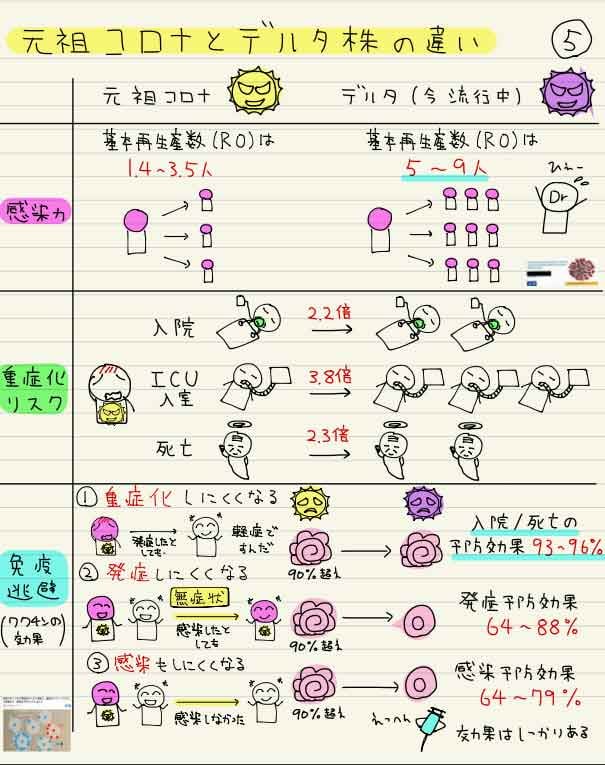 元祖コロナとデルタ株の違い
⑤
元祖コロナ
デルタ(今流行中)
感染力
基本再生産数(R0)は
1.4~3.5人
基本再生産数(R0)は
5~9人
ひぇー
Dr
重症化
リスク
入院
2.2倍
ICU
入室
3.8倍
死亡
2.3倍
免疫
逃避
(ワクチンの
効果)
①重症化しにくくなる
発症したと
しても
軽症で
すんだ
90%超え
入院/死亡の
予防効果 93~96%
②発症しにくくなる
無症状
感染したと
しても
90%超え
発症予防効果
64~88%
③感染もしにくくなる
感染しなかった
90%超え
感染予防効果
64~79%
えっへん
効果はしっかりある